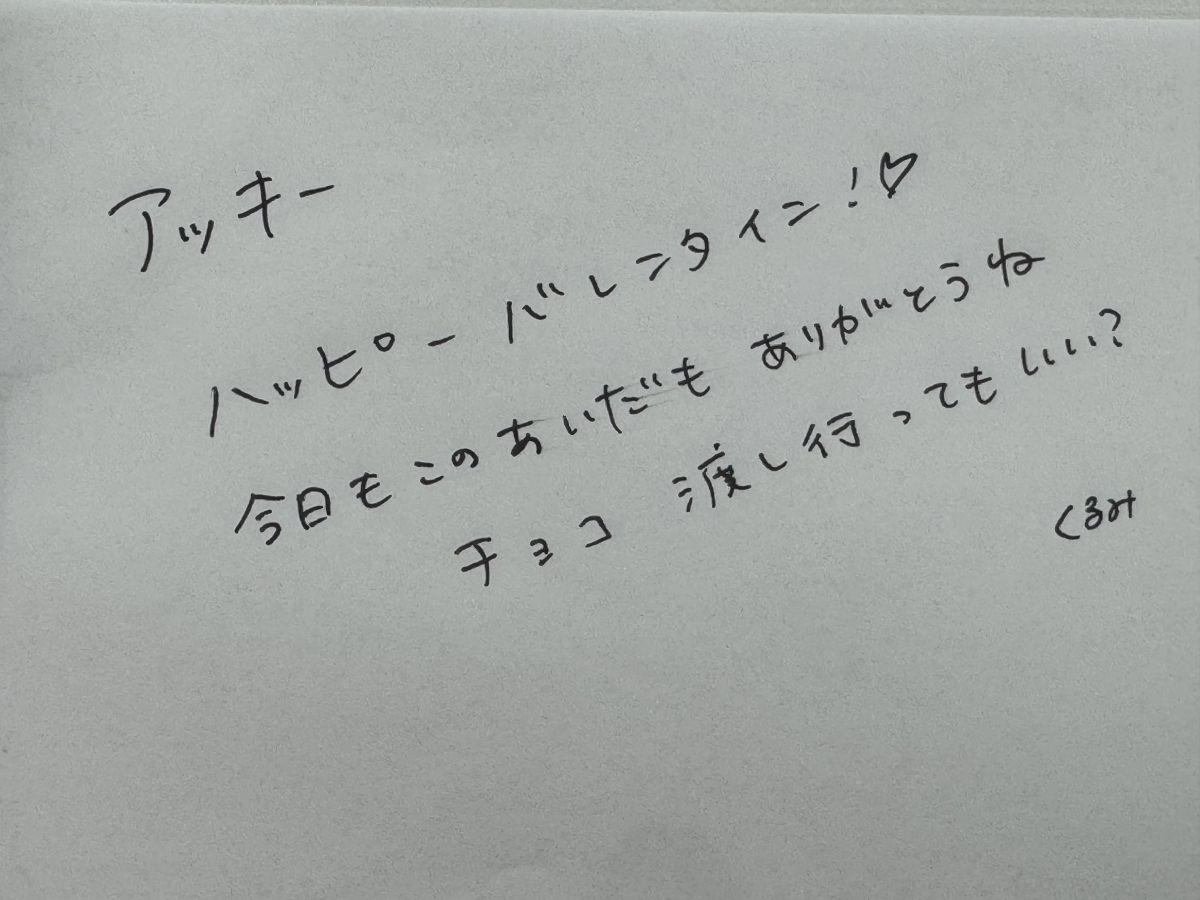 アッキー
ハッピーバレンタイン!♡
今日もこのあいだもありがとうね
チョコ渡し行ってもいい?
くるみ